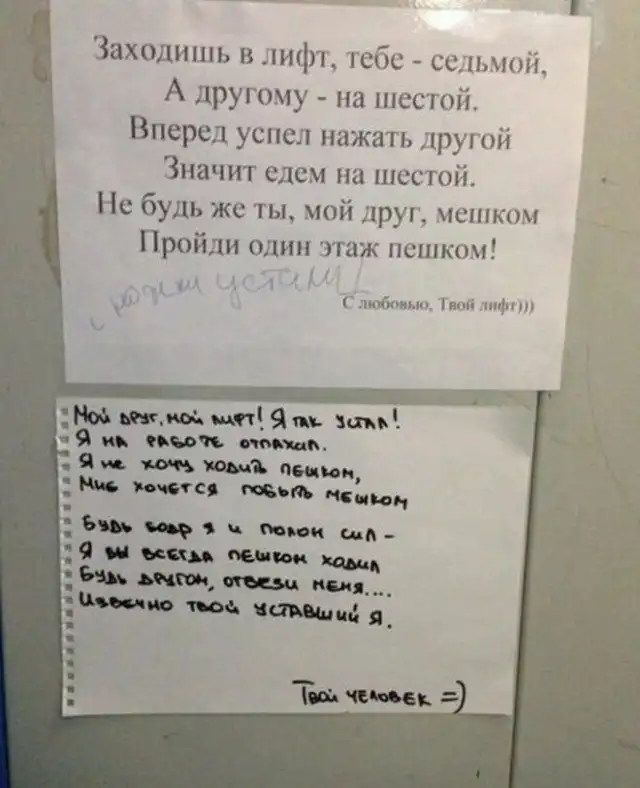 Заходишь в лифт, тебе - седьмой,
А другому - на шестой.
Вперед успел нажать другой
Значит едем на шестой.
Не будь же ты, мой друг, мешком
Пройди один этаж пешком!
устали
С любовью, Твой лифт)))
Мой друг, мой лифт! Я так устал!
Я на работе отпахал.
Я не хочу ходить пешком,
Мне хочется побыть мешком
Будь бодр я и полон сил -
Я бы всегда пешком ходил
Будь другом, отвези меня....
Извечно твой уставший я.
Твой человек =)